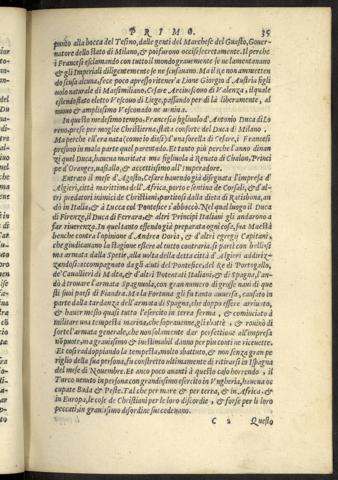 PRIMO. 35
punto alla bocca del Tesino, dalle genti del Marchese del Guasto, Gouer-
natore dello stato di Milano, & posfurono occisi secretamente. Il perche
i Francesi esclamando con tutto il mondo grauemente se ne lamentauano
& gli Imperiali diligentemente se ne scusauano. Ma il Re non ammetten
do scusa alcuna, fece poco apresso ritener a Lione Giorgio d'Austria figli
uolo naturale di Massimiliano, Cesare, Arciuescouo di Valenza, il quale
essendo stato eletto Vescouo di Liege, passando per di là liberamente, al
nuouo & amplissimo Vescouado ne ueniua.
In questo medesimo tempo, Francesco figliuolo d'Antonio Duca di Lo
reno, prese per moglie Christierna stata consorte del Duca di Milano.
Ma perche ell'era nata (come io dissi) d'una sorella di Cesare, i Francesi
presono in mala parte quel parentado. Et tanto più perche l'anno dinan
zi quel Duca, haueua maritata una figliuola à Renato di Chalon, Princi
pe d'Oranges, uassallo, & accettissimo all'Imperadore.
Entrato il mese d'Agosto, Cesare hauendo già disegnata l'impresa d'
Algieri, città marittima dell'Africa, porto & sentina de Corsali, & d'al
tri predatori inimici de Christiani, partitosi dalla dieta di Ratisbona, an
dò in Italia, & à Lucca col Pontefice s'abboccò. Nel qual luogo il Duca
di Firenze, il Duca di Ferrara, & altri Principi Italiani gli andarono a
far riuerenza. In quel tanto essendo già preparata ogni cosa, sua Maestà
benche contra l'opinione d'Andrea Doria, & d'altri egregij Capitani,
che giudicauano la stagione essere al tutto contraria, si partì con bellissi
ma armata dalla Spetie, alla uolta della detta città d'Algieri addiriz-
zandosi: accompagnato dagli aiuti del Pontefice, del Re di Portogallo,
de Cauallieri di Malta, & d'altri Potentati Italiani, & di Spagna, l'an-
dò à trouare l'armata Spagnuola, con gran numero di grosse naui di que
sti suoi paesi di Fiandra. Ma la Fortuna gli fu tanto auuersa, causato in
parte dalla tardanza dell'armata di Spagna, che doppo essere arriuato,
& hauer messo quasi tutto l'esercito in terra ferma, & cominciato à
militare una tempesta marina, che soprauenne, gli sbattè, & rouinò di
sorte l'armata generale, che non solamente dar perfettione all'impresa
nō puote, ma grauissimo & inestimabil danno per piu conti ne riceuette.
Et così raddoppiando la tempesta, molto sbattuto, & non senza gran pe
riglio della sua persona, fu constretto ultimamente di ritirarsi in Ispagna
del mese di Nouembre. Et anco poco auanti à questo caso horrendo, il
Turco uenuto in persona con grandissimo esercito in Vngheria, haueua oc
cupate Buda & Peste. Tal che per mare & per terra, & in Africa, &
in Europa, le cose de Christiani per le loro discordie, & forse per li loro
peccati, in grandissimo disordine succedeuano.
C 3 Questo